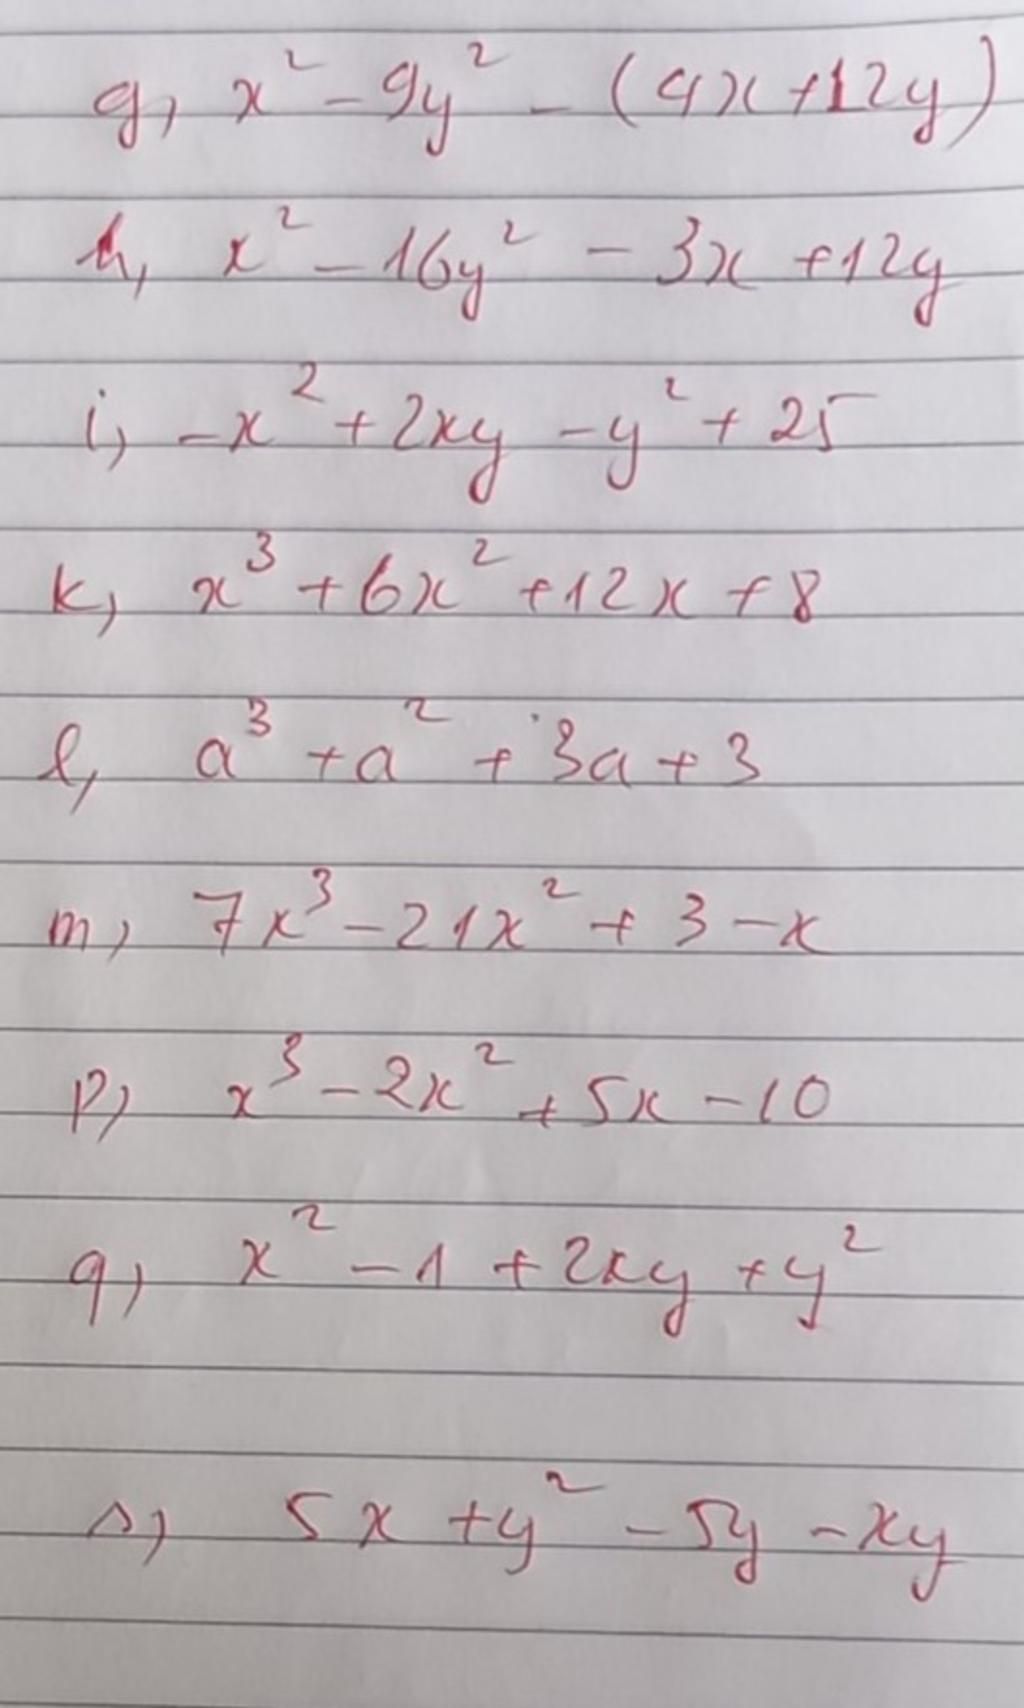 g, x² - 9y² - (4x + 12y)
h, x² - 16y² - 3x + 12y
i, -x² + 2xy - y² + 25
k, x³ + 6x² + 12x + 8
l, a³ + a² + 3a + 3
m, 7x³ - 21x² + 3 - x
p, x³ - 2x² + 5x - 10
q, x² - 1 + 2xy + y²
s, 5x + y² - 5y - xy